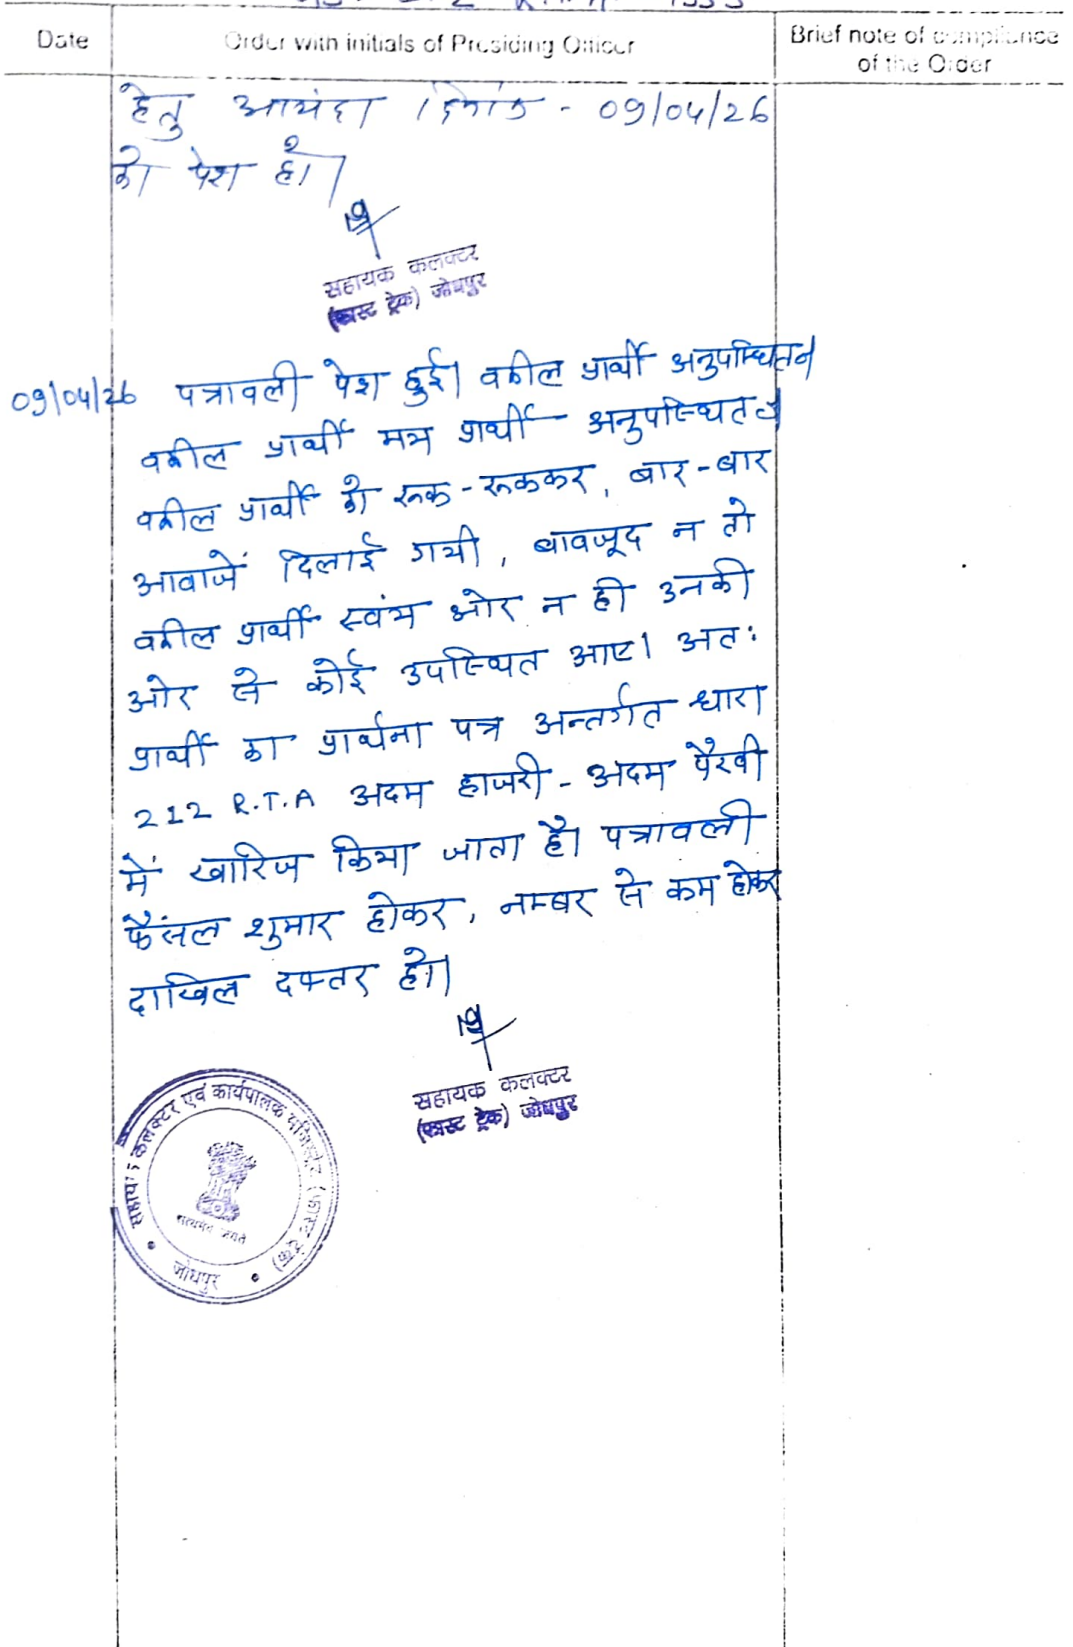 Date
Order with initials of Presiding Officer
Brief note of compliance
of the Order
हेतु आयंदा दिनांक - 09/04/26
को पेश हो।
सहायक कलक्टर
(फास्ट ट्रेक) जोधपुर
09/04/26 पत्रावली पेश हुई। वकील प्रार्थी अनुपस्थित।
वकील प्रार्थी मय प्रार्थी अनुपस्थित।
वकील प्रार्थी को रूक-रूककर, बार-बार
आवाजें दिलाई गयी, बावजूद न तो
वकील प्रार्थी स्वंय ओर न ही उनकी
ओर से कोई उपस्थित आए। अत:
प्रार्थी का प्रार्थना पत्र अन्तर्गत धारा
212 R.T.A अदम हाजरी - अदम पैरवी
में खारिज किया जाता है। पत्रावली
फैंसल शुमार होकर, नम्बर से कम होकर
दाखिल दफ्तर हो।
सहायक कलक्टर
(फास्ट ट्रेक) जोधपुर
सहायक कलक्टर एवं कार्यपालक मजिस्ट्रेट (फास्ट ट्रेक)
सत्यमेव जयते
जोधपुर